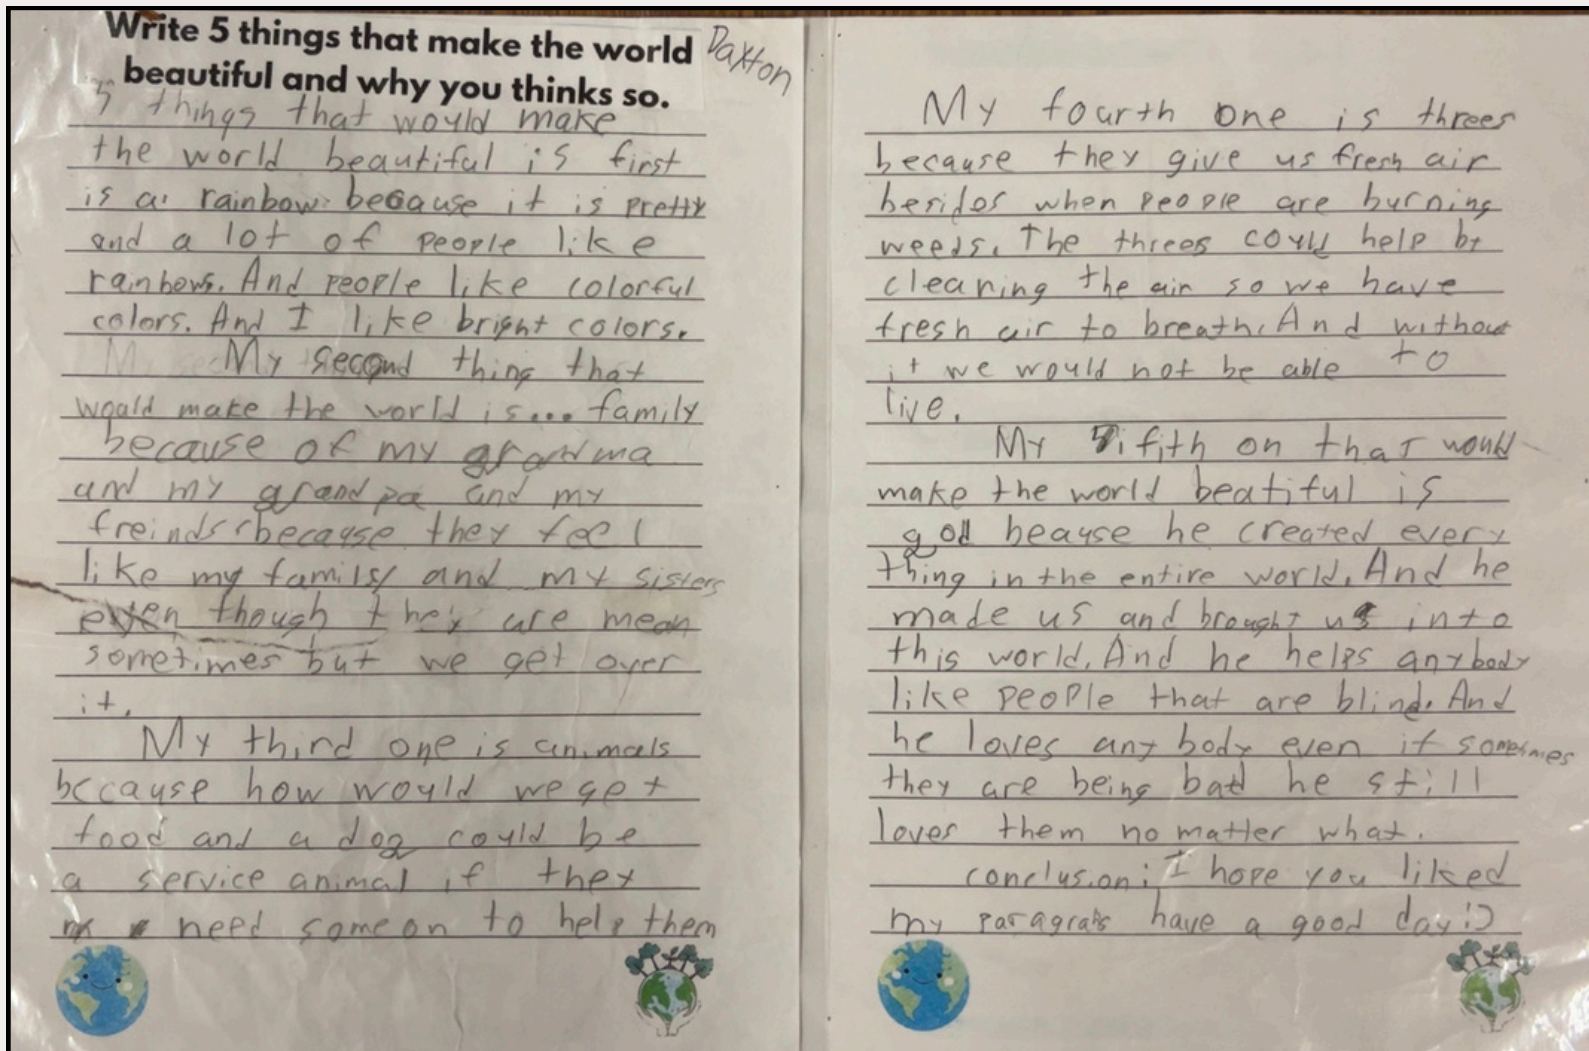 Write 5 things that make the world
beautiful and why you thinks so.
Daxton
5 things that would make
the world beautiful is first
is a rainbow because it is pretty
and a lot of people like
rainbows. And people like colorful
colors. And I like bright colors.
My second thing that
would make the world is... family
because of my grandma
and my grandpa and my
freinds because they feel
like my family and my sisters
even though they are mean
sometimes but we get over
it.
My third one is animals
because how would we get
food and a dog could be
a service animal if they
need someon to help them
My fourth one is threes
because they give us fresh air
besides when people are burning
weeds. The threes could help by
cleaning the air so we have
fresh air to breath. And without
it we would not be able to
live.
My fifth on that I would
make the world beatiful is
god beause he created every
thing in the entire world. And he
made us and brought us into
this world. And he helps anybody
like people that are blind. And
he loves any body even if sometimes
they are being bad he still
loves them no matter what.
conclusion: I hope you liked
my paragrahs have a good day :)